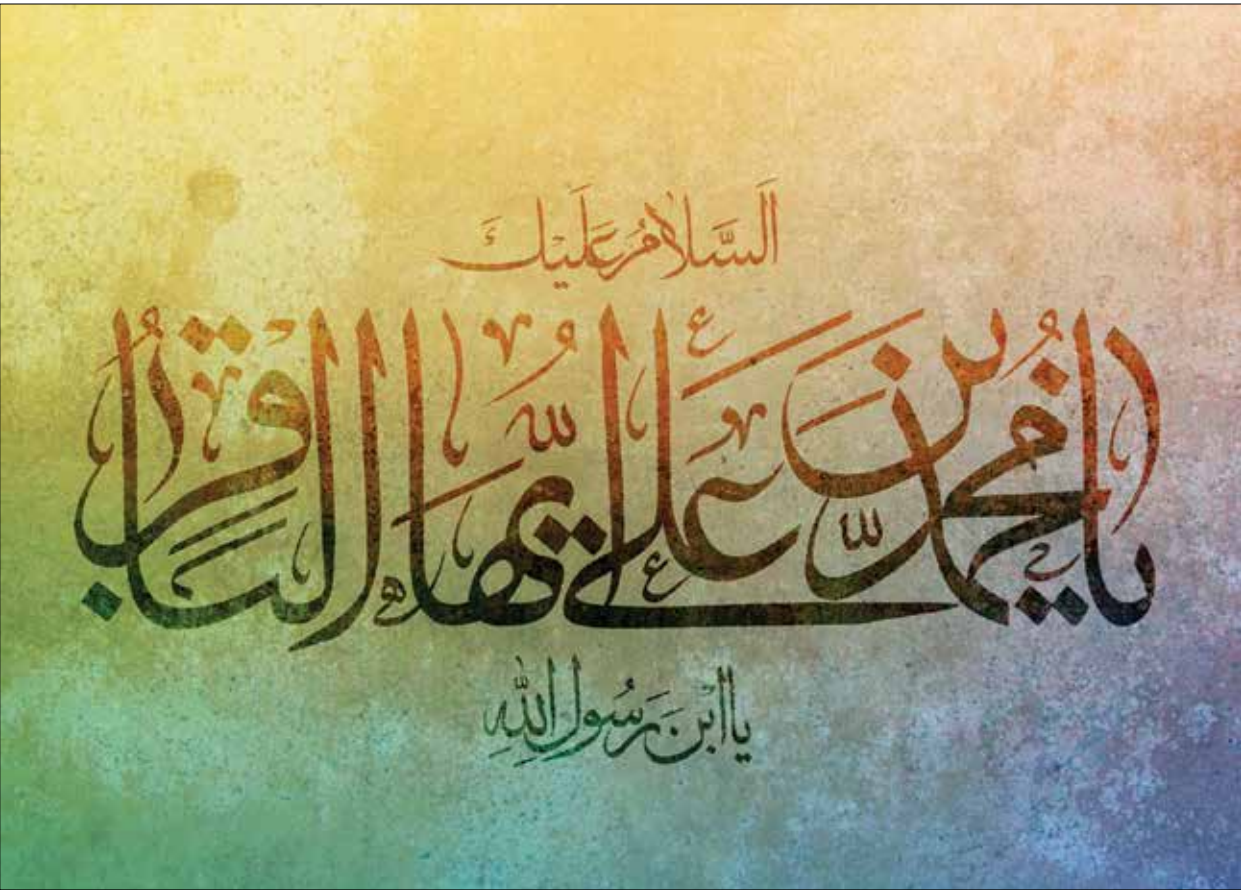 اَلسَّلامُ عَلَيْكَ
يا مُحَمَّدَ بنَ عَلي أيُّهَا الباقِرُ
يَا ابْنَ رَسُولِ اللهِ